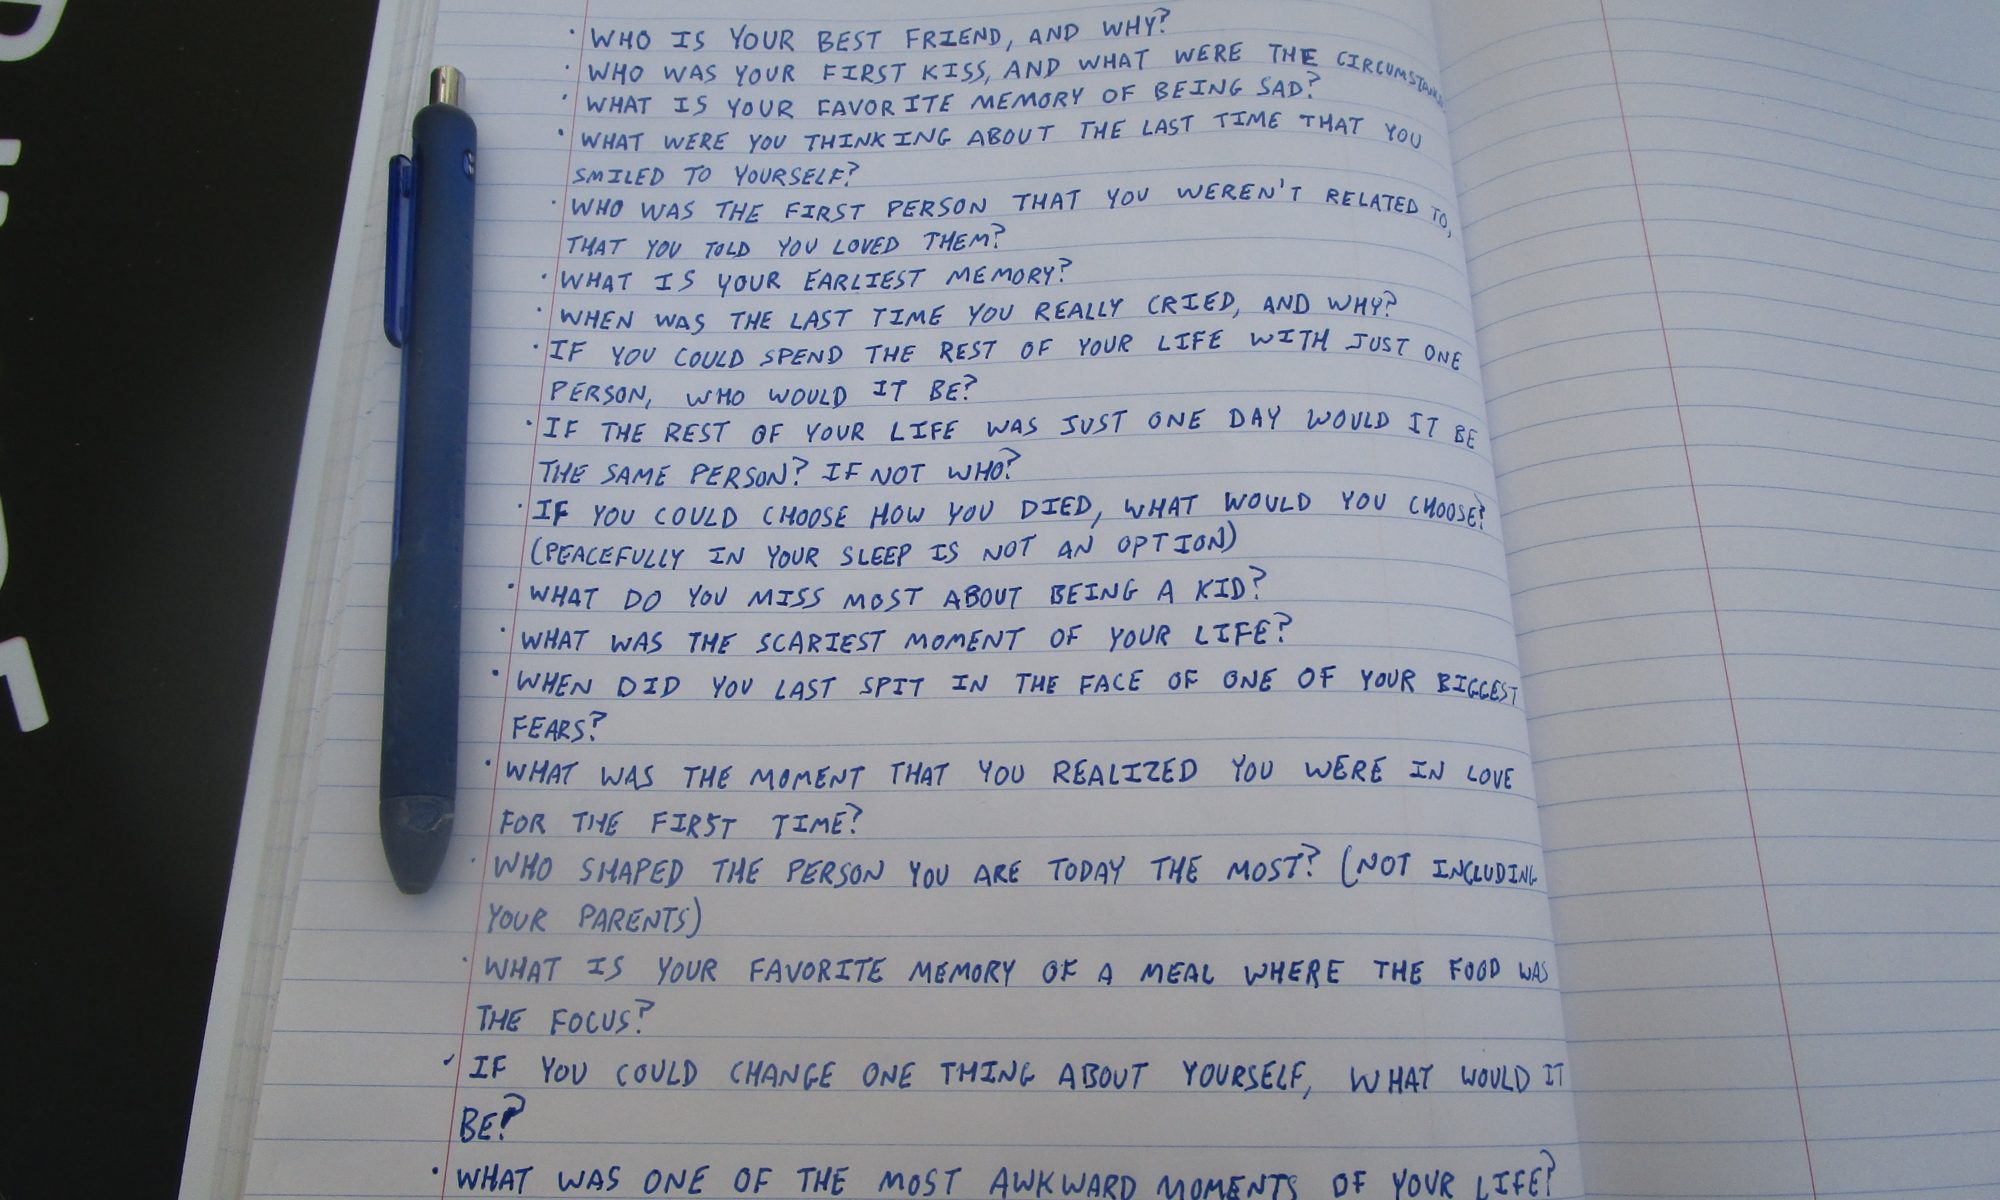 · WHO IS YOUR BEST FRIEND, AND WHY?
· WHO WAS YOUR FIRST KISS, AND WHAT WERE THE
· WHAT IS YOUR FAVORITE MEMORY OF BEING SAD?
· WHAT WERE YOU THINKING ABOUT THE LAST TIME THAT YOU
SMILED TO YOURSELF?
· WHO WAS THE FIRST PERSON THAT YOU WEREN'T RELATED TO,
THAT YOU TOLD YOU LOVED THEM?
· WHAT IS YOUR EARLIEST MEMORY?
· WHEN WAS THE LAST TIME YOU REALLY CRIED, AND WHY?
· IF YOU COULD SPEND THE REST OF YOUR LIFE WITH JUST ONE
PERSON, WHO WOULD IT BE?
· IF THE REST OF YOUR LIFE WAS JUST ONE DAY WOULD IT BE
THE SAME PERSON? IF NOT WHO?
· IF YOU COULD CHOOSE HOW YOU DIED, WHAT WOULD YOU CHOOSE?
(PEACEFULLY IN YOUR SLEEP IS NOT AN OPTION)
· WHAT DO YOU MISS MOST ABOUT BEING A KID?
· WHAT WAS THE SCARIEST MOMENT OF YOUR LIFE?
· WHEN DID YOU LAST SPIT IN THE FACE OF ONE OF YOUR BIGGEST
FEARS?
· WHAT WAS THE MOMENT THAT YOU REALIZED YOU WERE IN LOVE
FOR THE FIRST TIME?
· WHO SHAPED THE PERSON YOU ARE TODAY THE MOST? (NOT INCLUDING
YOUR PARENTS)
· WHAT IS YOUR FAVORITE MEMORY OF A MEAL WHERE THE FOOD WAS
THE FOCUS?
· IF YOU COULD CHANGE ONE THING ABOUT YOURSELF, WHAT WOULD IT
BE?
· WHAT WAS ONE OF THE MOST AWKWARD MOMENTS OF YOUR LIFE?